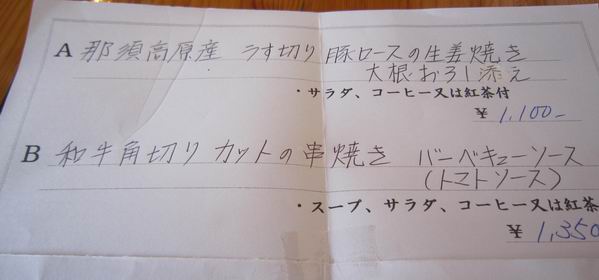 A 那須高原産 うす切り 豚ロースの生姜焼き
大根おろし添え
・サラダ、コーヒー又は紅茶付
¥ 1,100-
B 和牛角切りカットの串焼き バーベキューソース
(トマトソース)
・スープ、サラダ、コーヒー又は紅茶
¥ 1,350